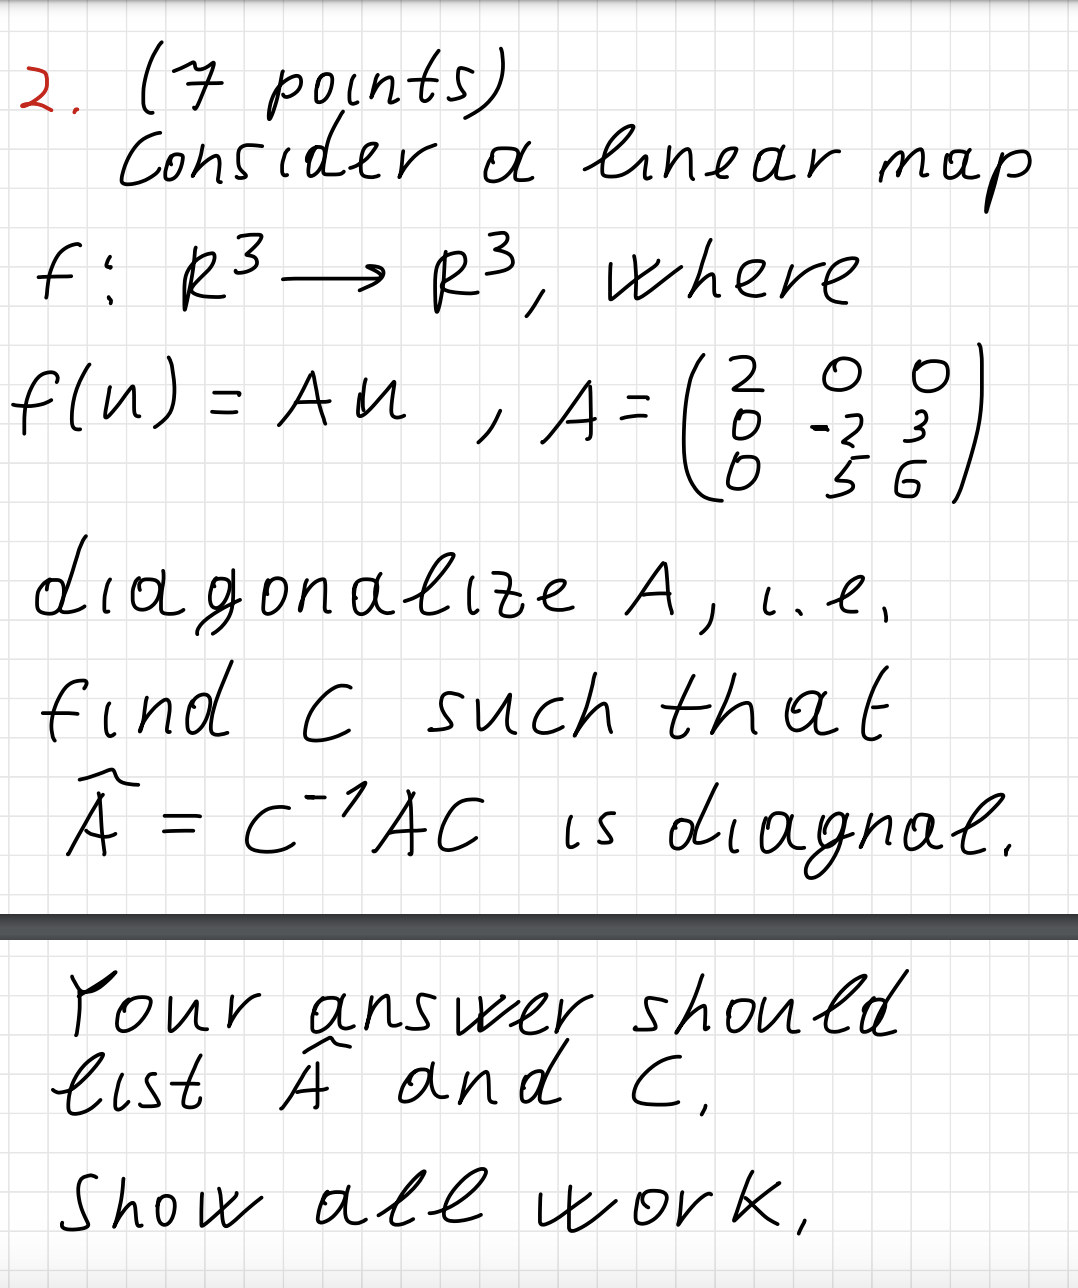 2. (7 points)
Consider a linear map
f: R³ → R³, where
f(u) = Au, A = (2 0 0
0 -2 3
0 5 6)
diagonalize A, i.e.
find C such that
Â = C⁻¹AC is diagnal.
Your answer should
list Â and C.
Show all work.